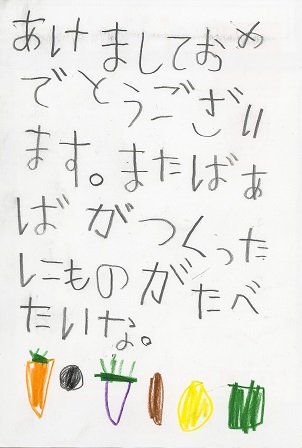 あけましておめ
でとうござい
ます。またばぁ
ばがつくった
にものがたべ
たいな。